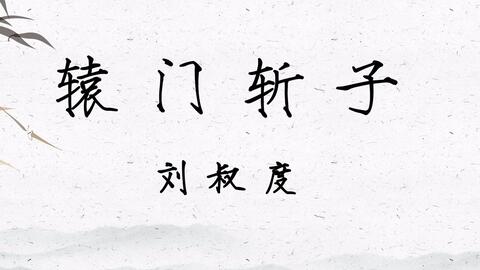 辕门斩子
刘叔度